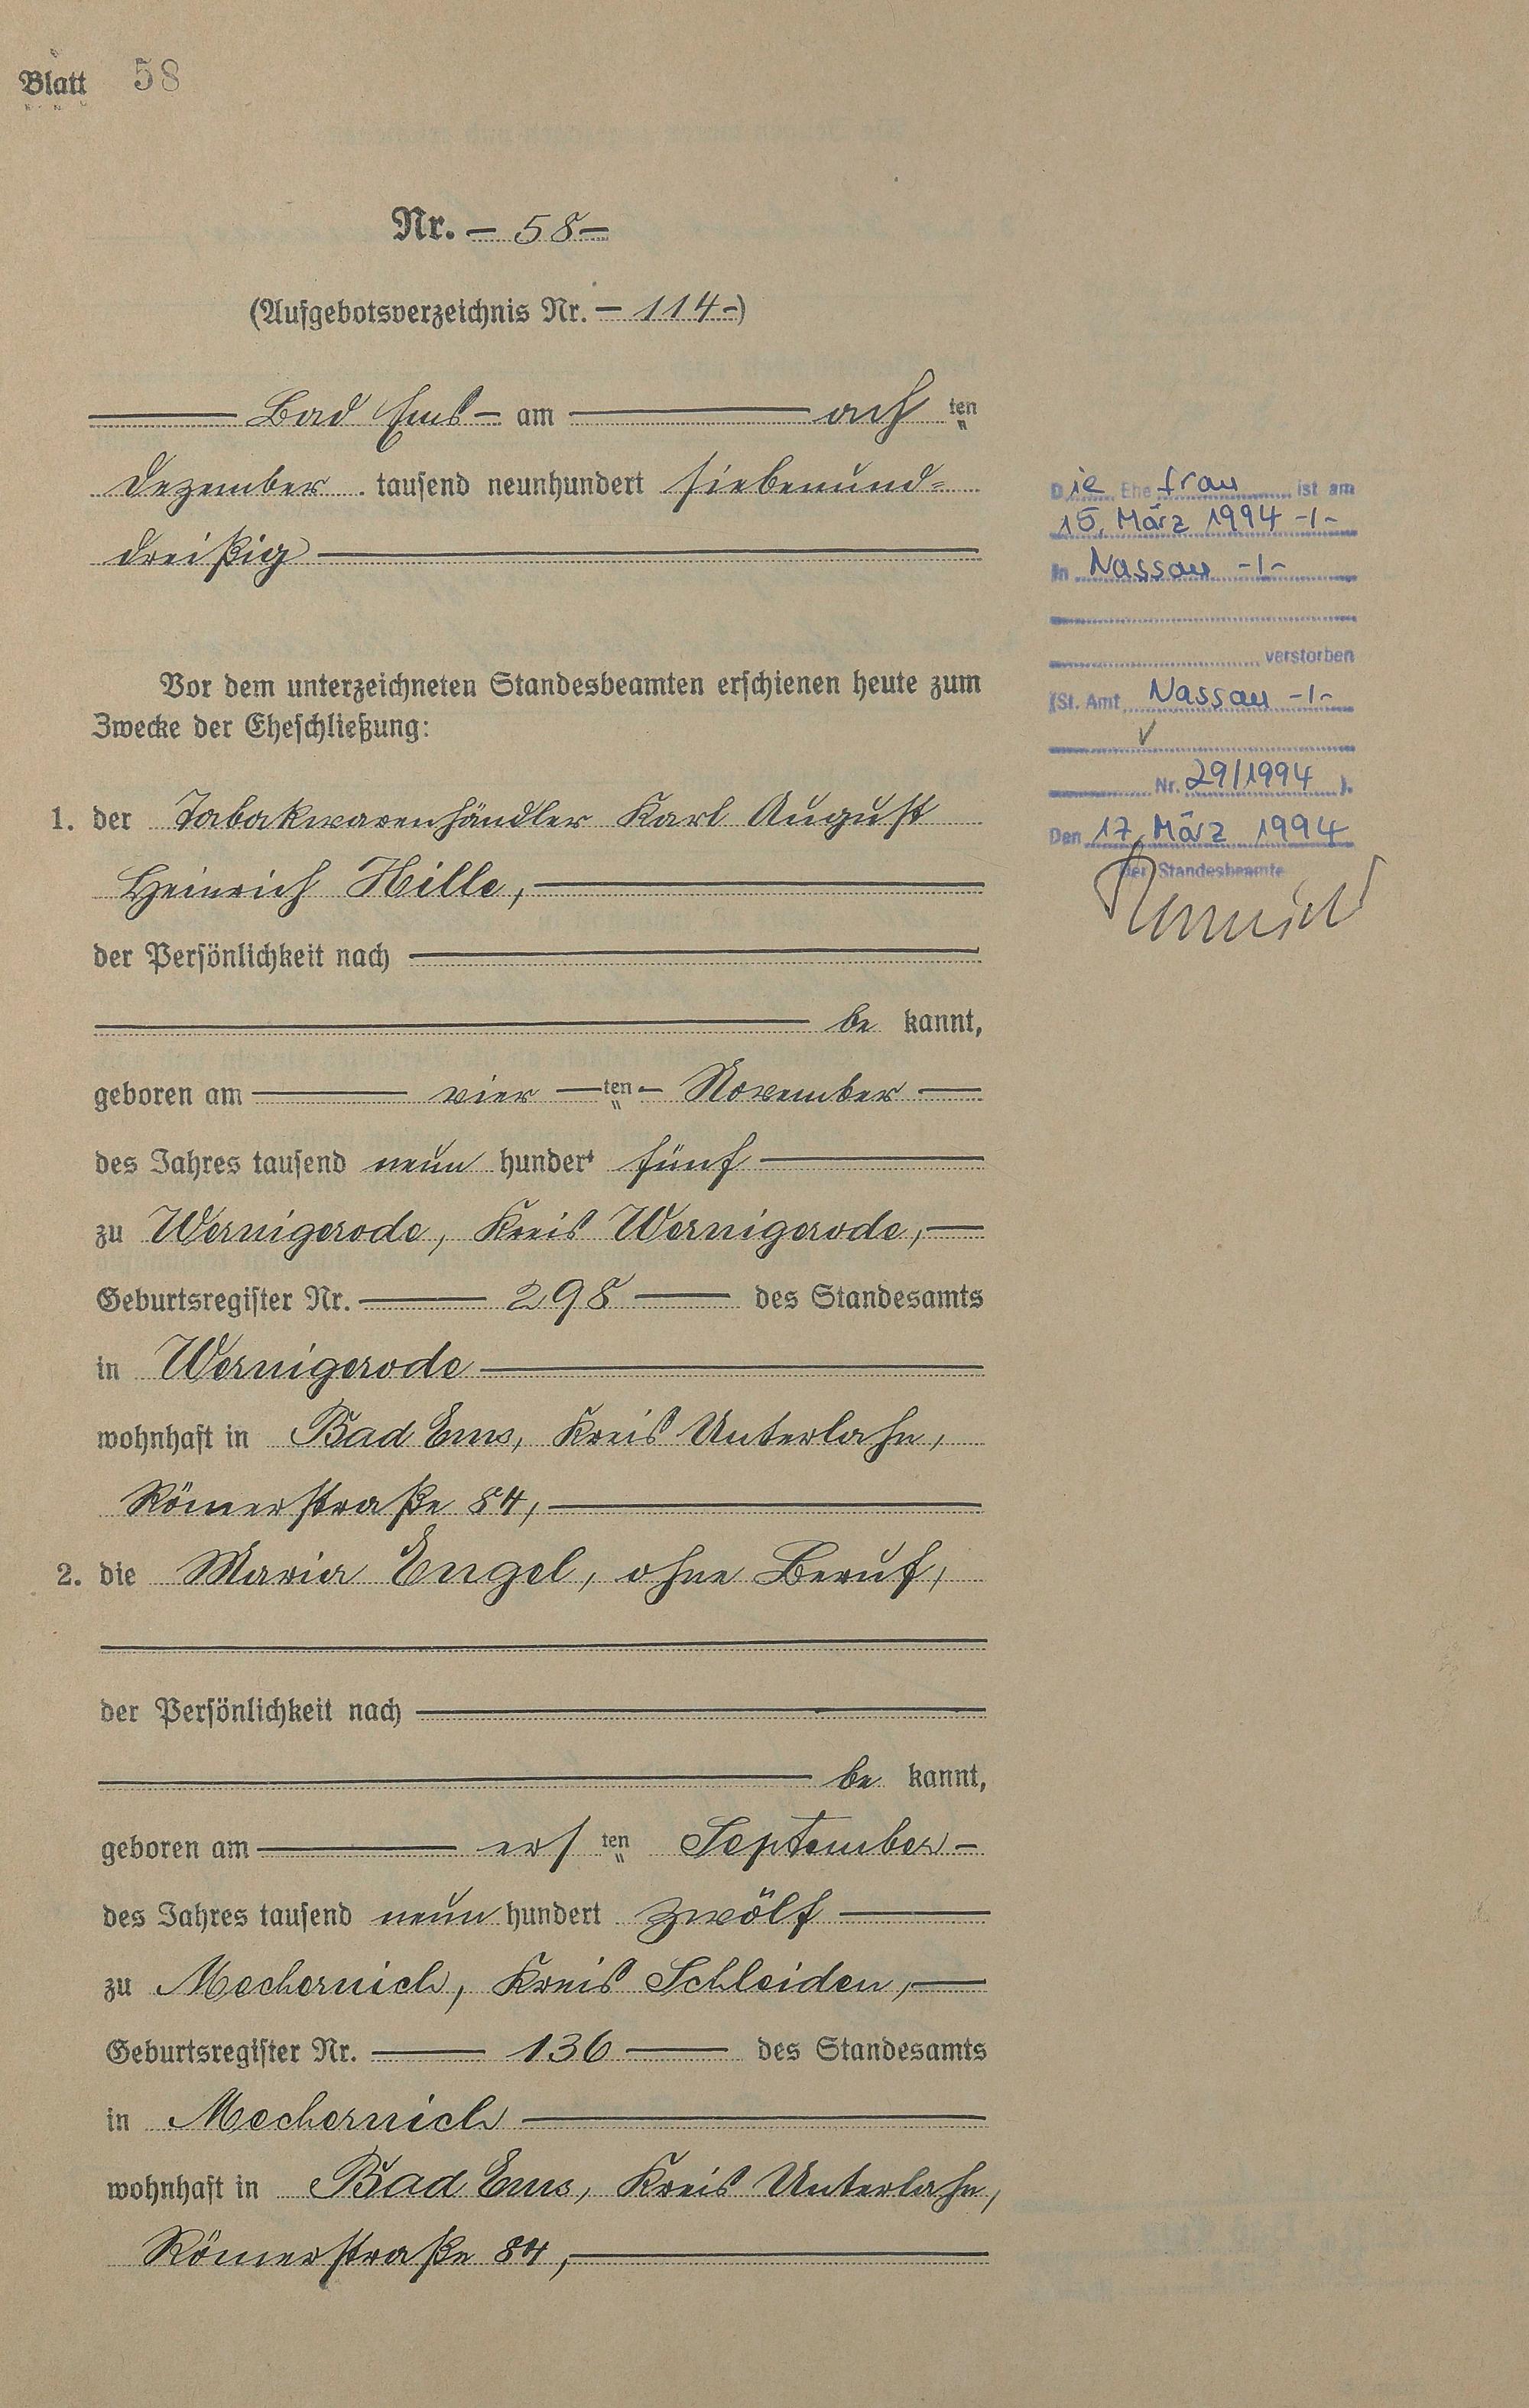 Blatt 58
Nr. – 58 –
(Aufgebotsverzeichnis Nr. – 114 –)
Bad Ems – am acht ten
Dezember tausend neunhundert siebenund=
dreißig
Vor dem unterzeichneten Standesbeamten erschienen heute zum
Zwecke der Eheschließung:
1. der Tabakwarenhändler Karl August
Heinrich Hille,
der Persönlichkeit nach
be kannt,
geboren am vier ten November
des Jahres tausend neun hundert fünf
zu Wernigerode, Kreis Wernigerode,
Geburtsregister Nr. 298 des Standesamts
in Wernigerode
wohnhaft in Bad Ems, Kreis Unterlahn,
Römerstraße 84,
2. die Maria Engel, ohne Beruf,
der Persönlichkeit nach
be kannt,
geboren am ers ten September
des Jahres tausend neun hundert zwölf
zu Mechernich, Kreis Schleiden,
Geburtsregister Nr. 136 des Standesamts
in Mechernich
wohnhaft in Bad Ems, Kreis Unterlahn,
Römerstraße 84,
Die Ehefrau ist am
15. März 1994 -/-
in Nassau -/-
verstorben
(St. Amt Nassau -/-
Nr. 29/1994 ).
Den 17. März 1994
Der Standesbeamte